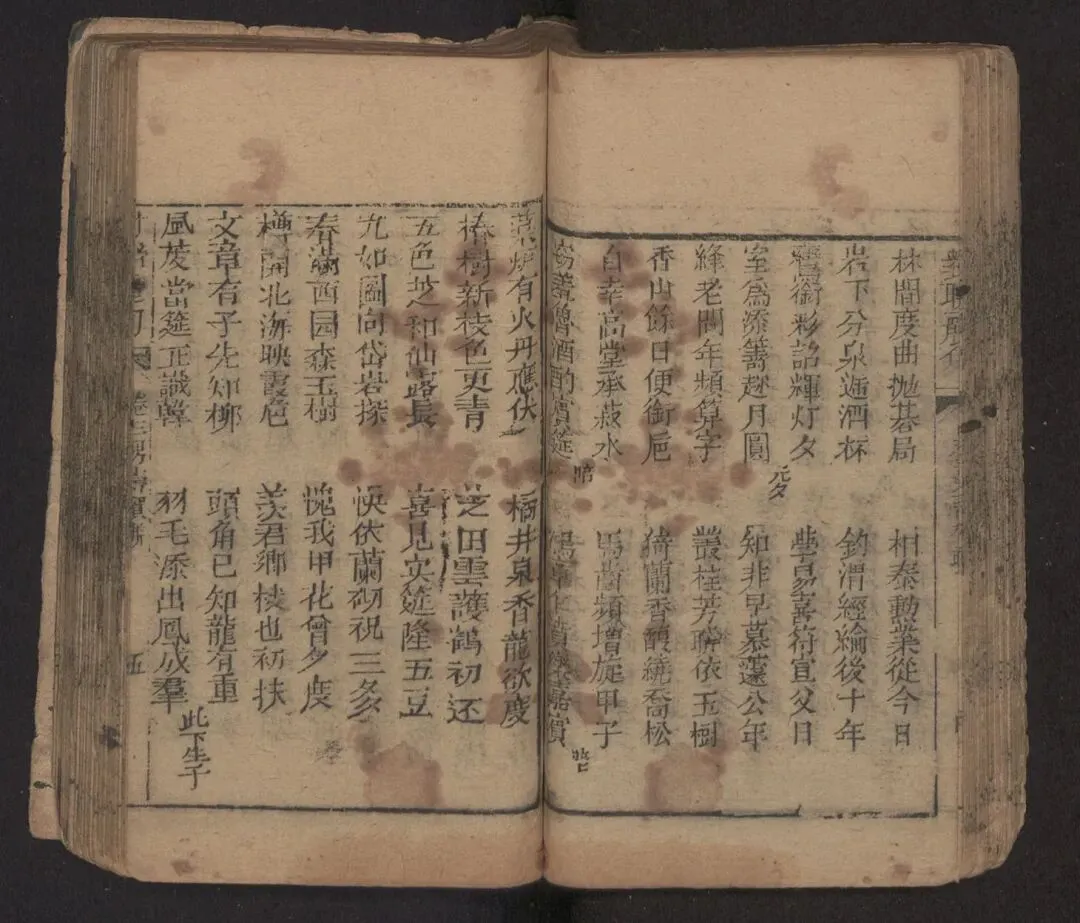 林間度曲拋碁局
相秦勳業從今日
岩下分泉遞酒杯
釣渭經綸後十年
舊銜彩詔輝灯夕
元夕
學易喜符宣父日
室為添籌趂月圓
知非早慕蘧公年
絳老問年頻算字
叢桂芳聯依玉樹
香山餘日便銜巵
猗蘭香馥繞喬松
自幸高堂承菽水
馬齒頻增旋甲子
酒酌賓筵
有火丹應伏
橘井泉香龍欲度
椿樹新枝色更青
芝田雲護鶴初还
五色芝和仙露長
喜見实筵隆五豆
九如圖向岱岩探
快依蘭砌祝三多
春滿西园森玉樹
愧我甲花曾夕度
樽開北海映霞巵
羡君鄉杖也初扶
文章有子先知柳
頭角已知龍有重
風度當筵正識韓
羽毛添出鳳成羣
此下生子
五